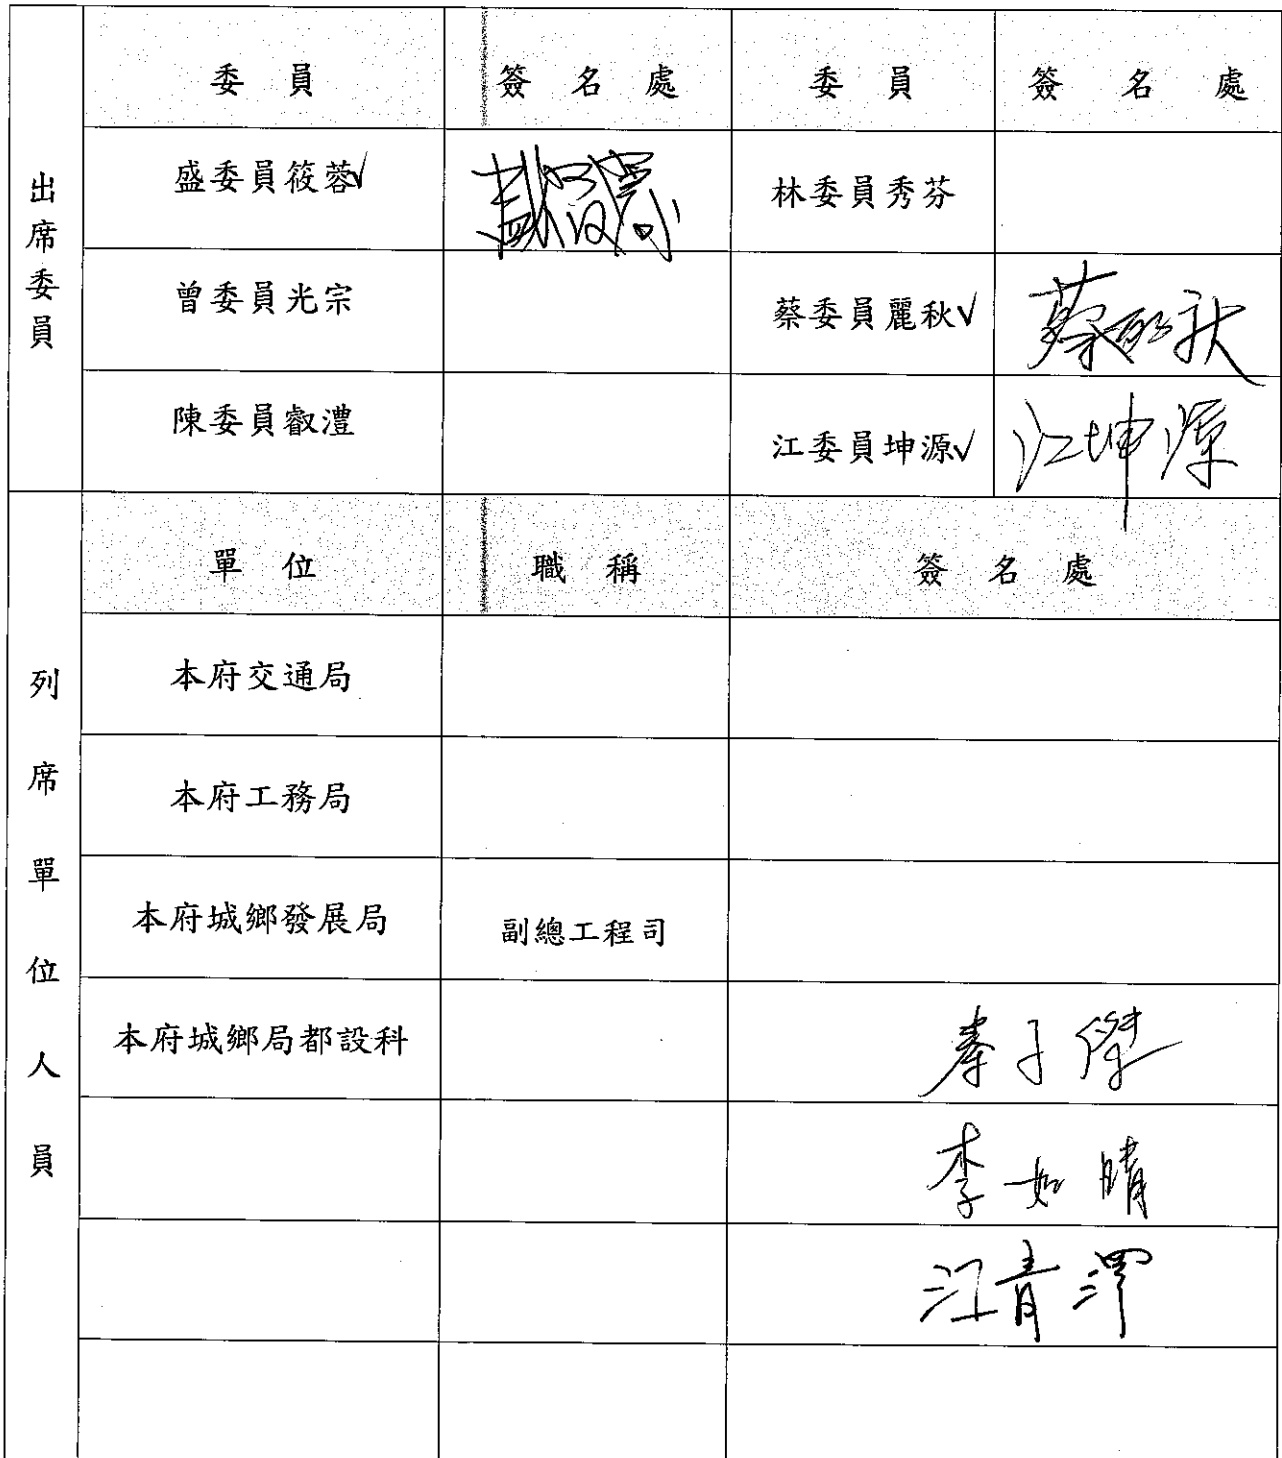 出席委員
委員 簽名處 委員 簽名處
盛委員筱蓉✓ 林委員秀芬
曾委員光宗 蔡委員麗秋✓ 蔡麗秋
陳委員叡澧 江委員坤源✓ 江坤源
列席單位人員
單位 職稱 簽名處
本府交通局
本府工務局
本府城鄉發展局 副總工程司
本府城鄉局都設科 秦子傑
李如晴
江青澤